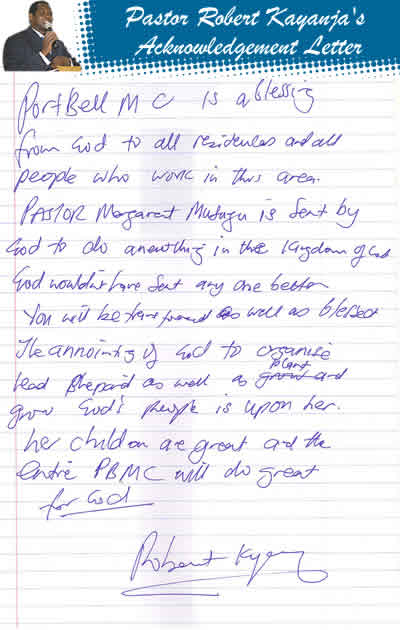 Pastor Robert Kayanja's
Acknowledgement Letter
PortBell MC is a blessing
from God to all residences and all
people who work in this area.
PASTOR Margaret is sent by
God to do a new thing in the kingdom of God
God wouldn't have sent any one better
You will be as well as blessed
The annointing of God to organise
lead shepard as well as plant and
grow God's people is upon her.
her children are great and the
entire PBMC will do great
for God
Robert